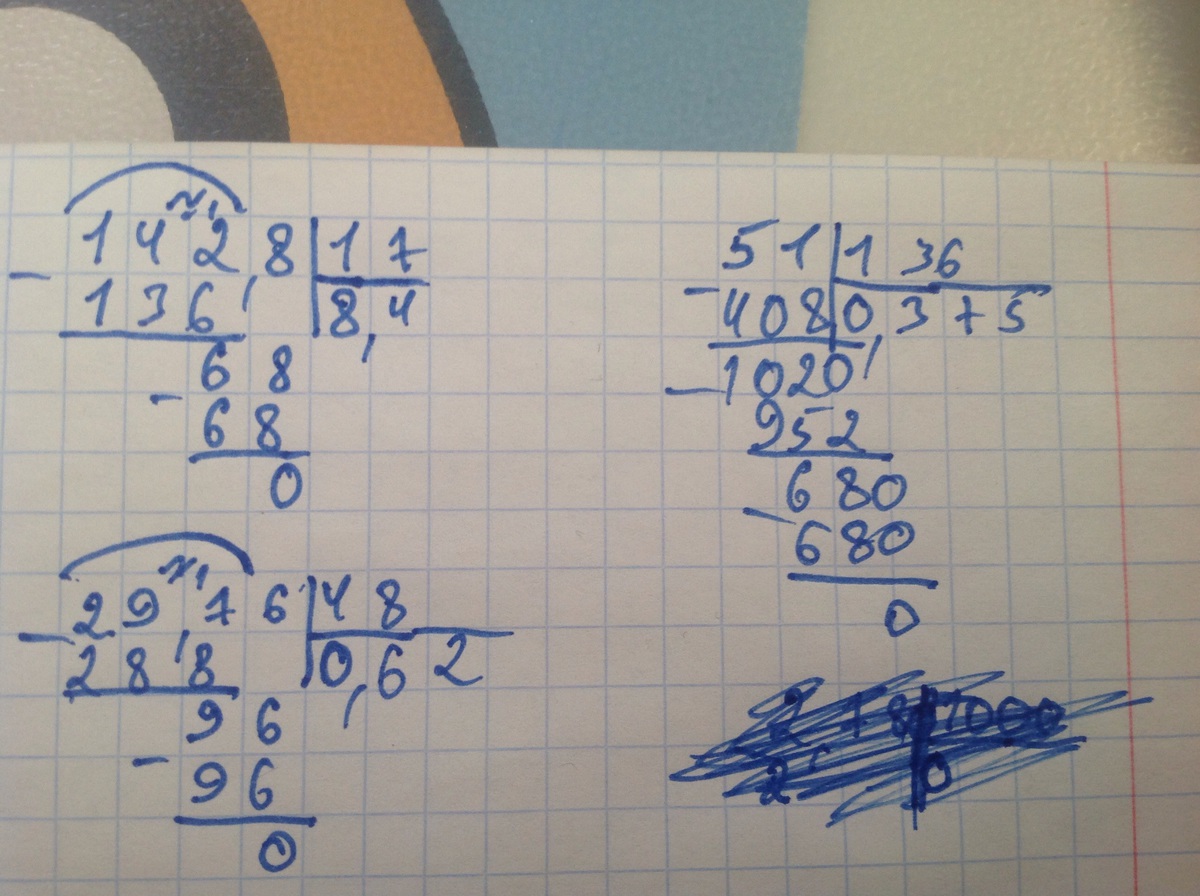 142,8|17
- 136 8,4
68
- 68
0
29,76|48
- 288 0,62
96
- 96
0
51|136
- 408 0,375
- 1020
952
- 680
680
0